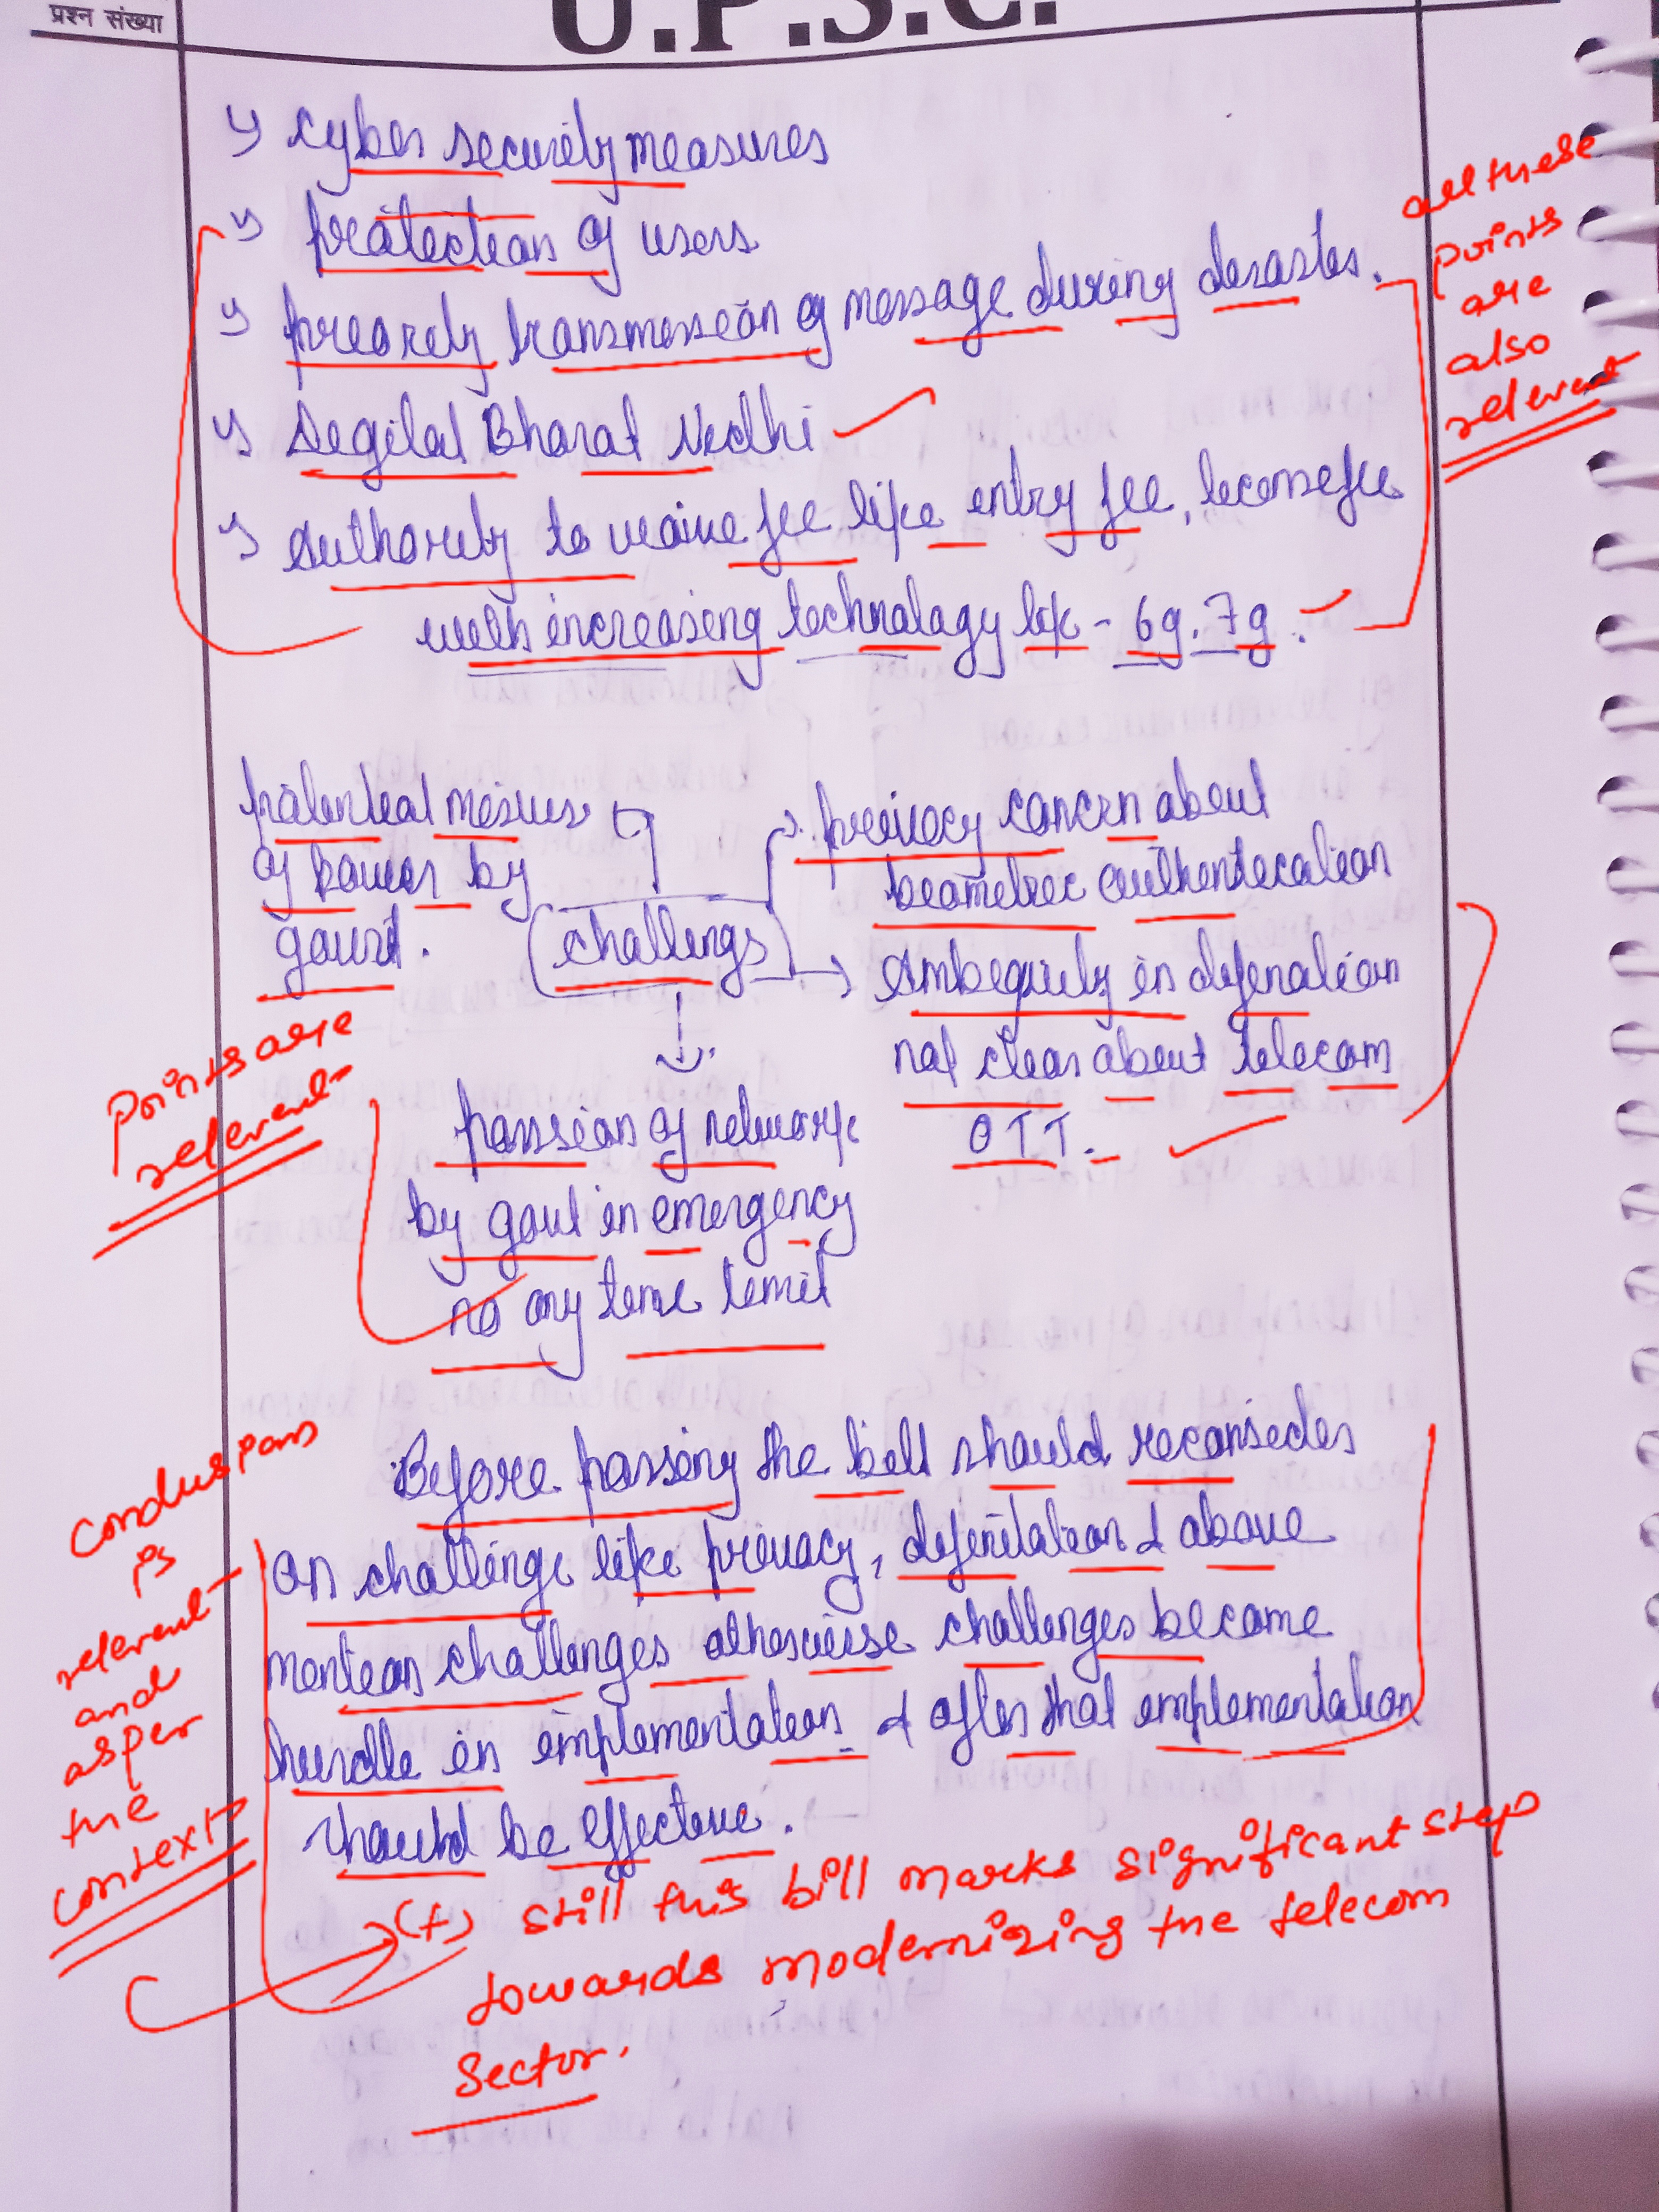 प्रश्न संख्या
U.P.S.C.
cyber security measures
protection of users
priority transmission of message during disaster.
Digital Bharat Nidhi
Authority to waive fee like entry fee, license fee
with increasing technology lik - 6g, 7g.
all these
points
are
also
relevant
potential misuse
of power by
govt.
challengs
privacy concern about
biometric authentication
Ambiguity in defination
not clear about telecom
OTT.
possion of network
by govt in emergency
no any time limit
points are
relevant
Before passing the bill should reconsider
on challenge like privacy, definitation & above
mention challenges otherwise challenges become
hurdle in implementation & after that implementation
should be effective.
Conclusion
is
relevent
and
as per
the
context
(+) still this bill marks significant step
towards modernizing the telecom
sector.